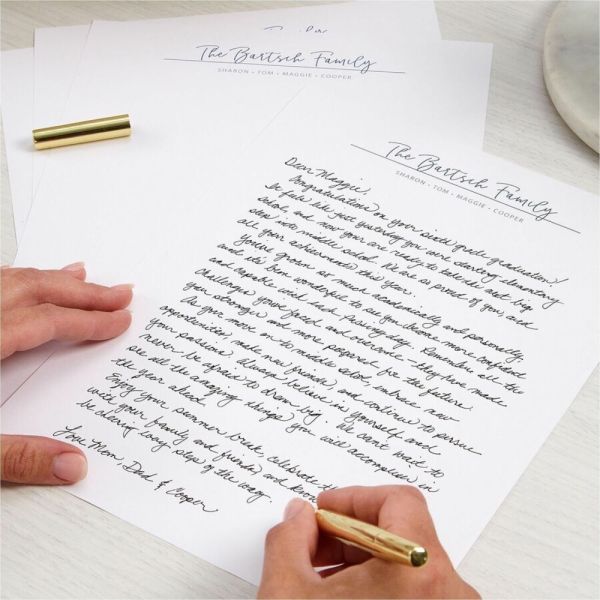 The Bartsch Family
SHARON • TOM • MAGGIE • COOPER
The Bartsch Family
SHARON • TOM • MAGGIE • COOPER
Dear Maggie,
Congratulations on your sixth grade graduation!
It feels like just yesterday you were starting elementary
school, and now your are ready to take the next big
step into middle school. We are so proud of you, and
all your achievements this year.
You've grown so much academically and personally,
and it's been wonderful to see you become more confident
and capable with each passing day. Remember, all the
challenges you've faced and overcome – they've made
you stronger and more prepared for the future.
As your move on to middle school, embrace new
opportunities, make new friends, and continue to pursue
your passions. Always believe in yourself and
never be afraid to dream big. We can't wait to
see all the amazing things you will accomplish in
the year ahead.
Enjoy your summer break, celebrate the
with your family and friends, and know
be cheering every step of the way.
Love Mom, Dad & Cooper